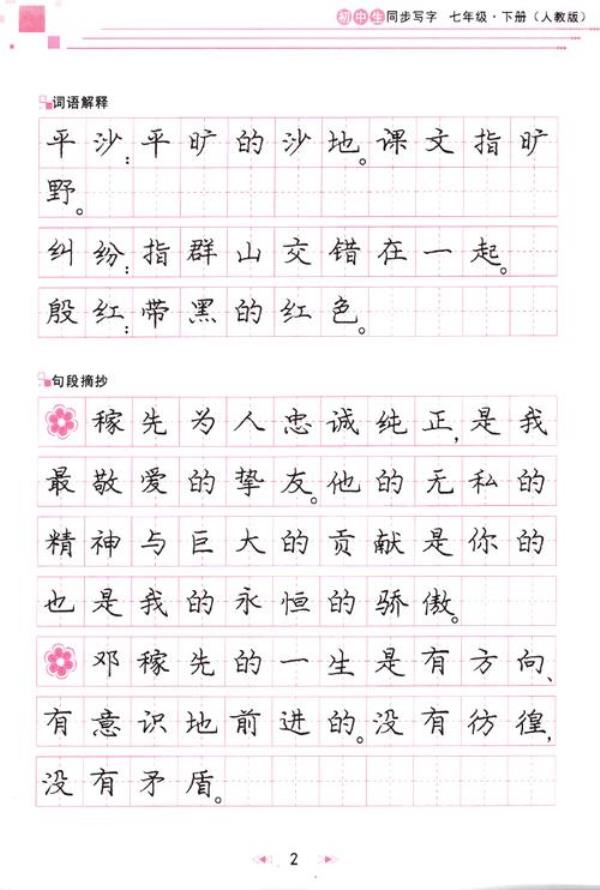 初中生同步写字 七年级·下册（人教版）
词语解释
平沙：平旷的沙地。课文指旷
野。
纠纷：指群山交错在一起。
殷红：带黑的红色。
句段摘抄
稼先为人忠诚纯正，是我
最敬爱的挚友。他的无私的
精神与巨大的贡献是你的
也是我的永恒的骄傲。
邓稼先的一生是有方向、
有意识地前进的。没有彷徨，
没有矛盾。
2